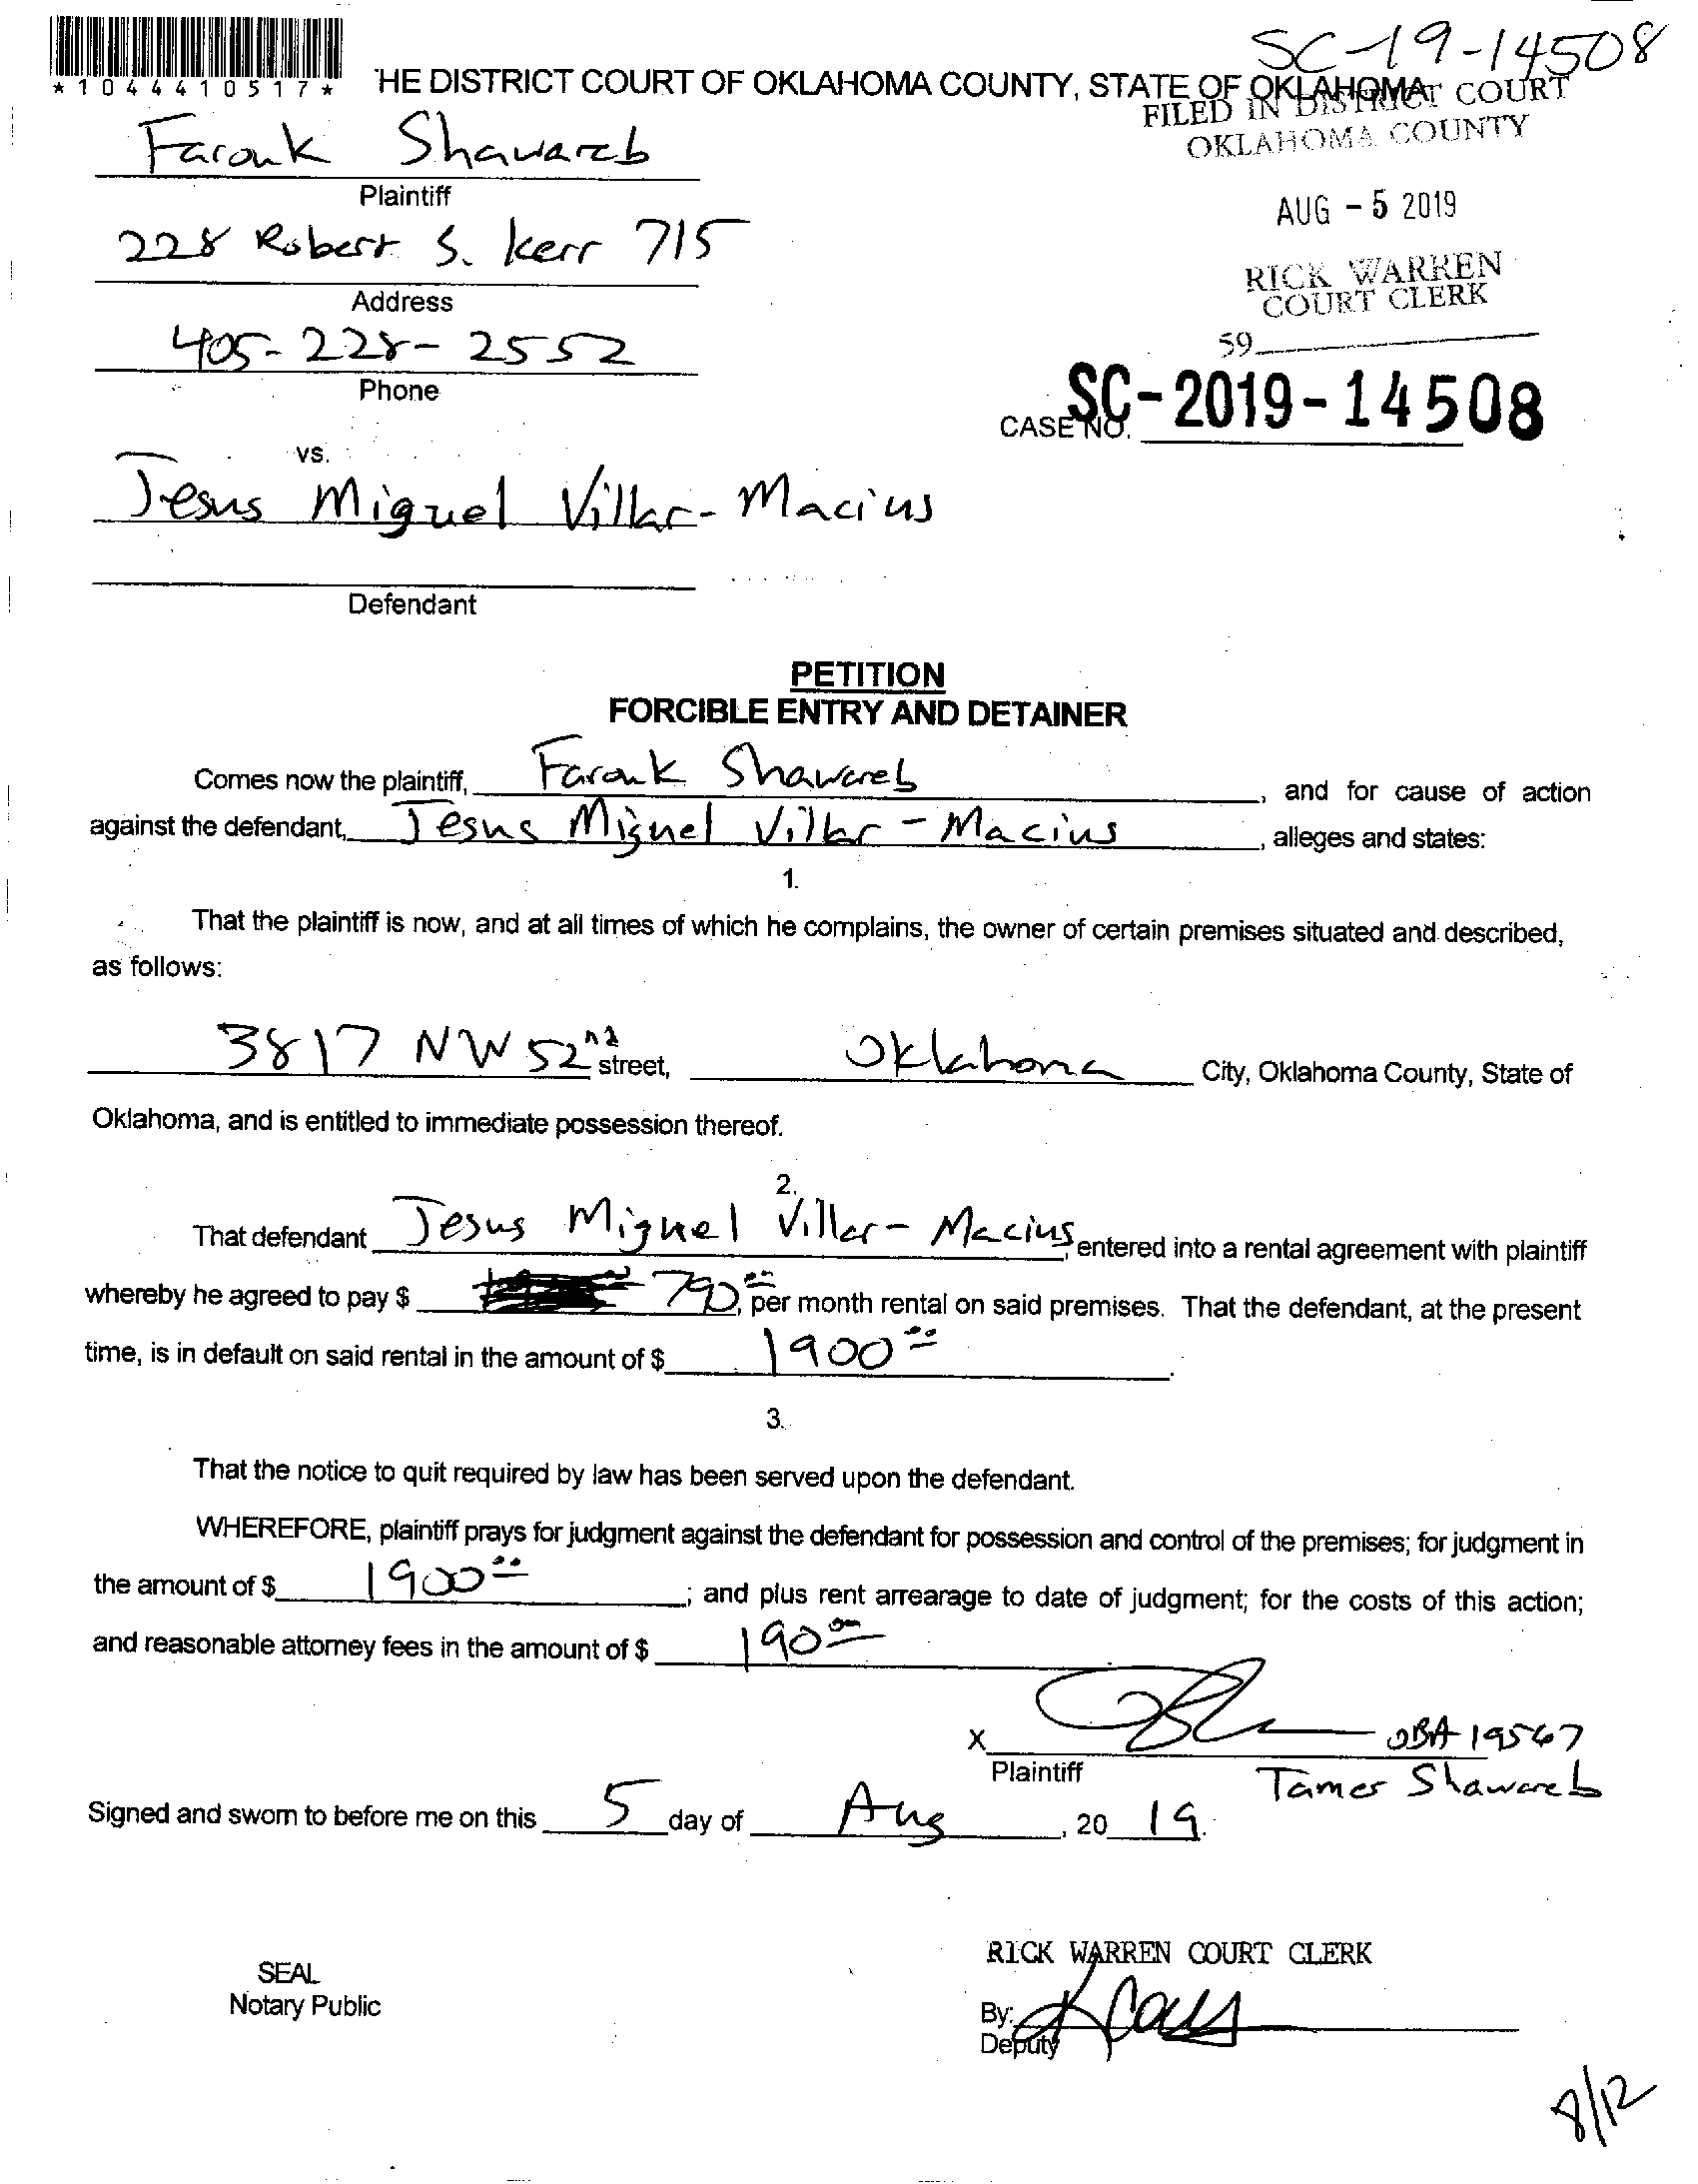 SC-19-14508
*1044410517*
HE DISTRICT COURT OF OKLAHOMA COUNTY, STATE OF OKLAHOMA
FILED IN DISTRICT COURT
OKLAHOMA COUNTY
Farouk Shawareb
Plaintiff
AUG - 5 2019
228 Robert S. Kerr 715
Address
RICK WARREN
COURT CLERK
405-228-2552
59
Phone
CASE NO. SC-2019-14508
vs.
Jesus Miguel Villar-Macius
Defendant
PETITION
FORCIBLE ENTRY AND DETAINER
Comes now the plaintiff, Farouk Shawareb, and for cause of action
against the defendant, Jesus Miguel Villar-Macius, alleges and states:
1.
That the plaintiff is now, and at all times of which he complains, the owner of certain premises situated and described,
as follows:
3817 NW 52nd street, Oklahoma City, Oklahoma County, State of
Oklahoma, and is entitled to immediate possession thereof.
2.
That defendant Jesus Miguel Villar-Macius, entered into a rental agreement with plaintiff
whereby he agreed to pay $ 790.00, per month rental on said premises. That the defendant, at the present
time, is in default on said rental in the amount of $ 1900.00.
3.
That the notice to quit required by law has been served upon the defendant.
WHEREFORE, plaintiff prays for judgment against the defendant for possession and control of the premises; for judgment in
the amount of $ 1900.00; and plus rent arrearage to date of judgment; for the costs of this action;
and reasonable attorney fees in the amount of $ 190.00
X OBA 19567
Plaintiff Tamer Shawareb
Signed and sworn to before me on this 5 day of Aug, 20 19.
RICK WARREN COURT CLERK
SEAL
Notary Public
By:
Deputy
8/12